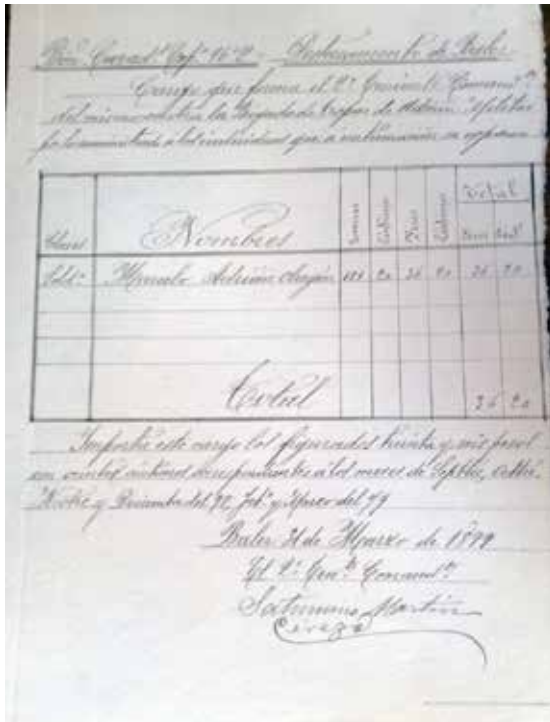 Bón. Cazad.s Exp.º Nº 2 Destacamento de Baler
Cargo que forma el 2º Teniente Comand.te
del mismo contra la Brigada de tropas de Admon. Militar
por lo suministrado a los individuos que a continuación se expresan
Total
Clases Nombres Pesos Cent.s
Sold.º Marcelo Adrian Obregón 181 20 36 20 36 20
Total 36 20
Importa este cargo los figurados treinta y seis pesos
con veinte céntimos correspondientes a los meses de Sepbre, Octbre,
Novbre y Diciembre del 98, Feb.º y Marzo del 99
Baler 31 de Marzo de 1899
El 2º Ten.te Comand.te
Saturnino Martín
Cerezo